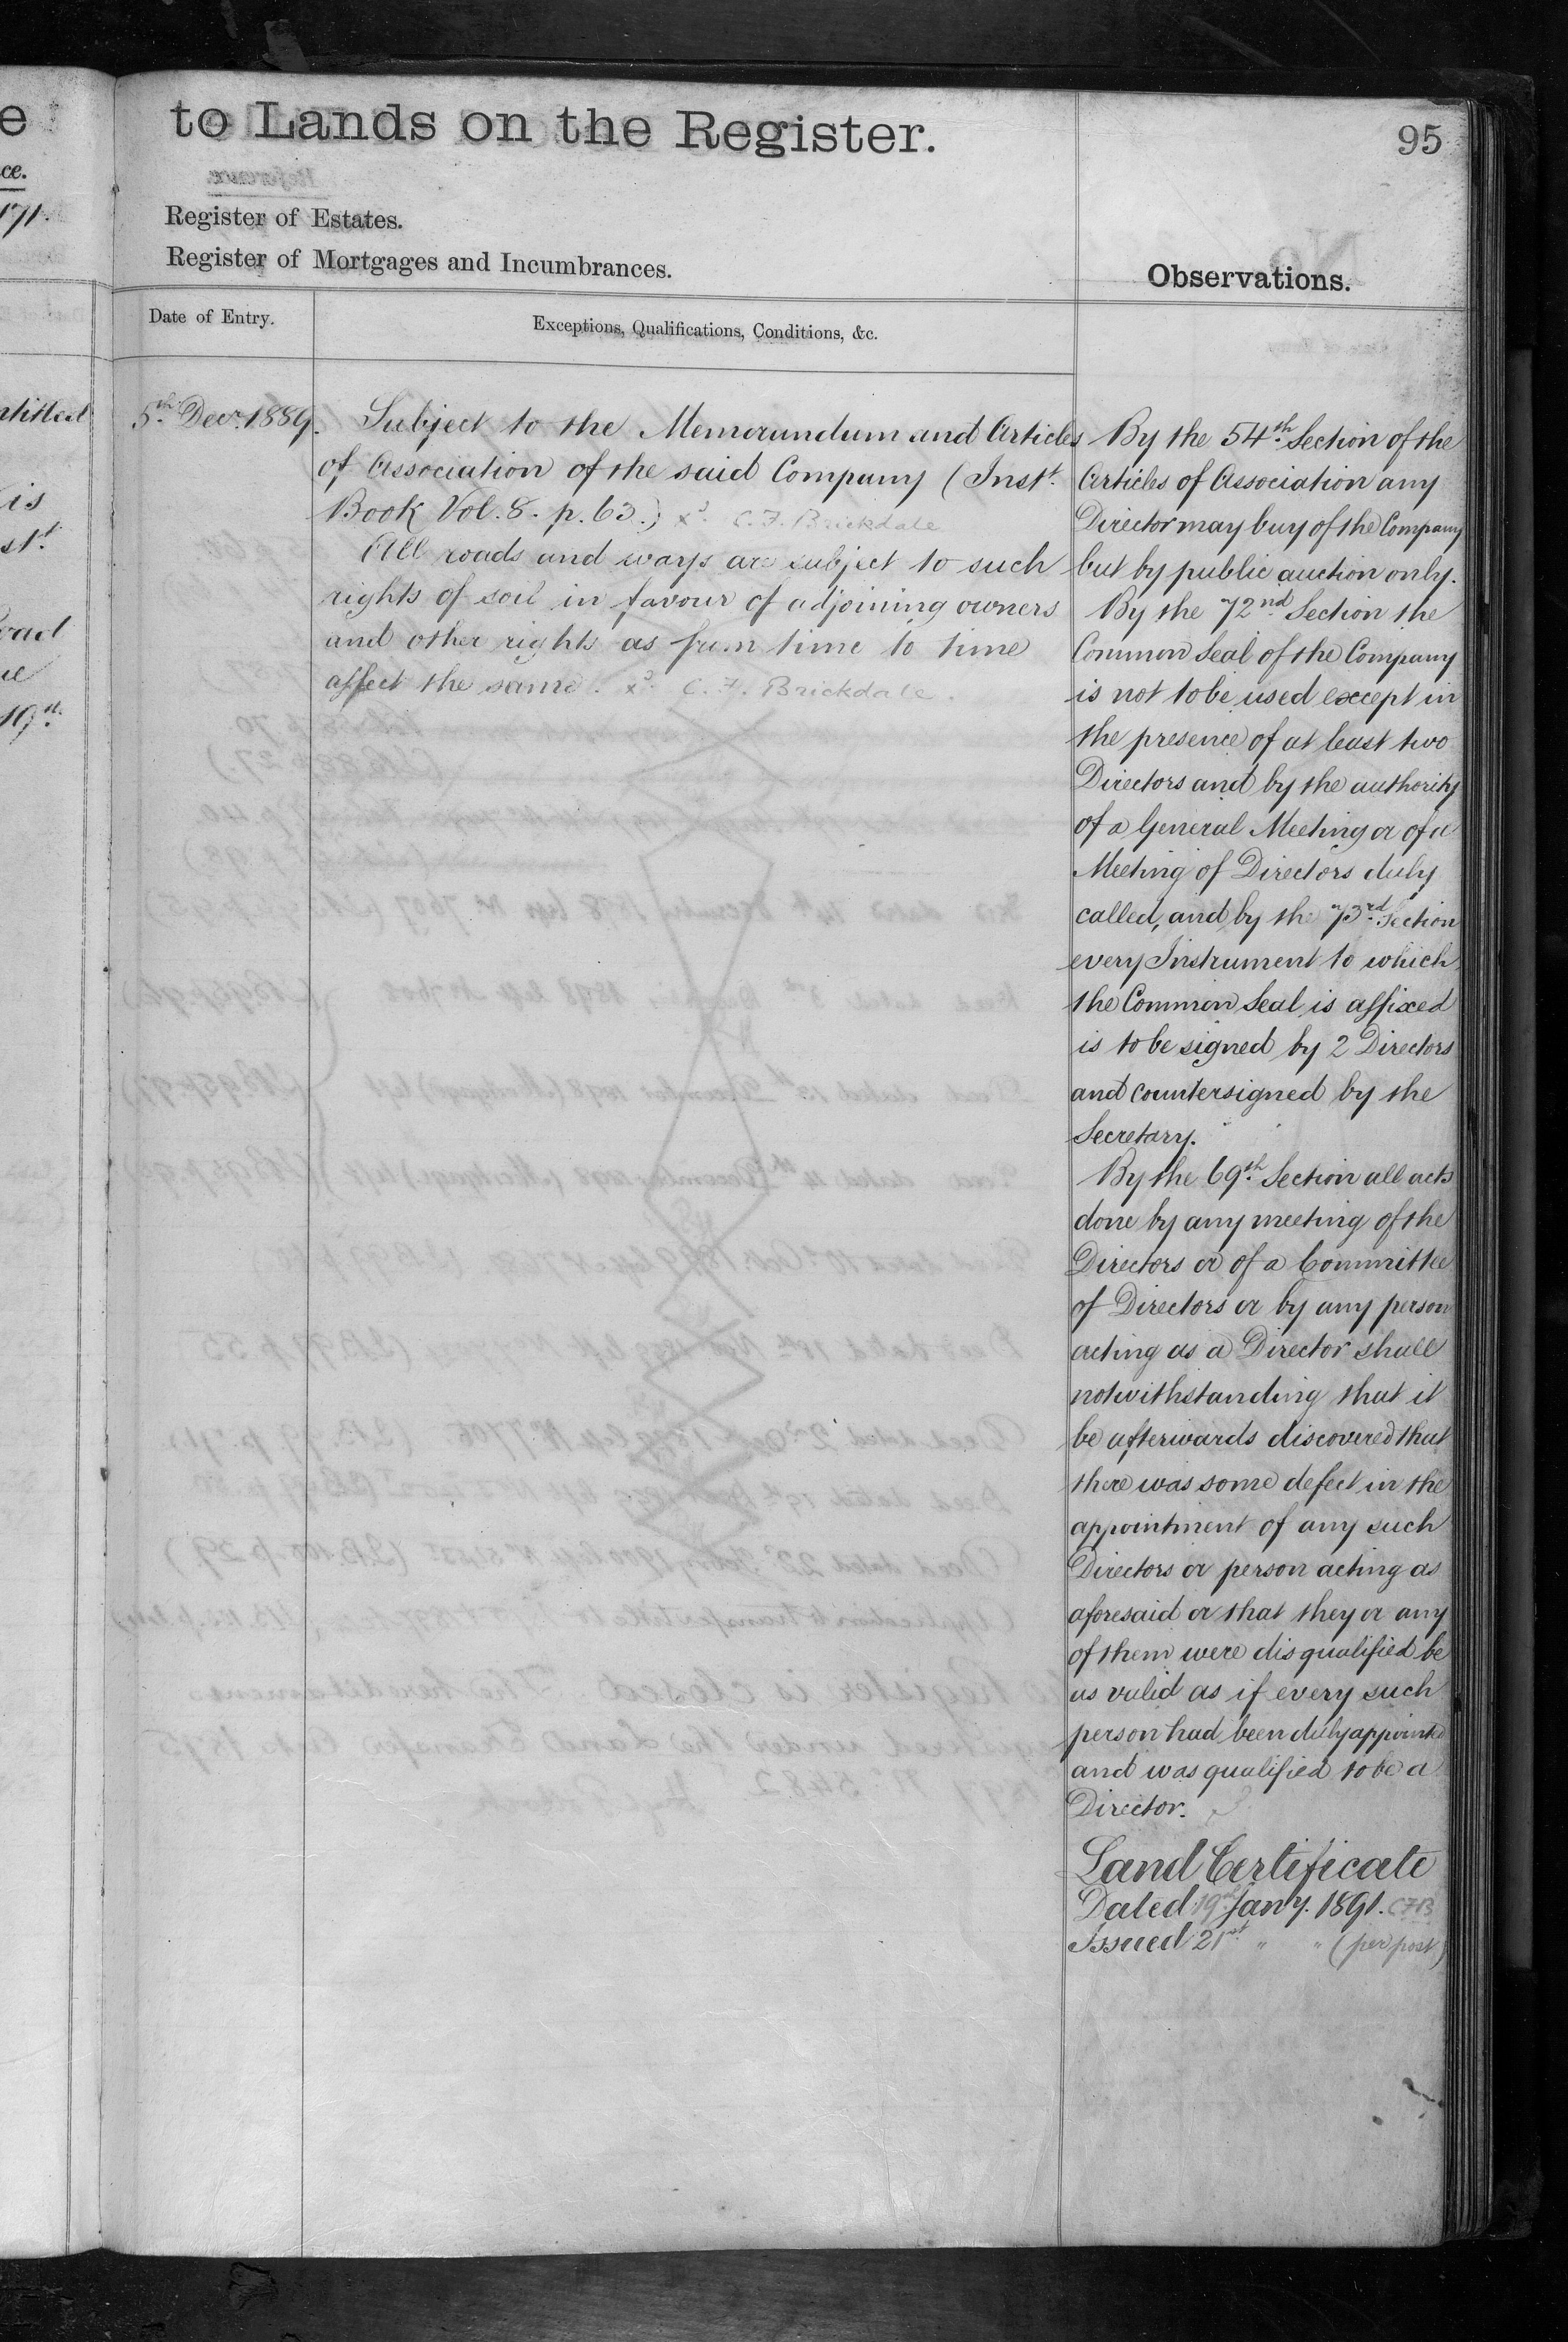 to Lands on the Register.
95
Register of Estates.
Register of Mortgages and Incumbrances.
Observations.
Date of Entry.
Exceptions, Qualifications, Conditions, &c.
5th Decr. 1889.
Subject to the Memorandum and Articles
of Association of the said Company (Instt.
Book Vol. 8. p. 63.) xd. C. F. Brickdale
All roads and ways are subject to such
rights of soil in favour of adjoining owners
and other rights as from time to time
affect the same. xd. C. F. Brickdale.
By the 54th Section of the
Articles of Association any
Director may buy of the Company
but by public auction only.
By the 72nd Section the
Common Seal of the Company
is not to be used except in
the presence of at least two
Directors and by the authority
of a General Meeting or of a
Meeting of Directors duly
called, and by the 73rd Section
every Instrument to which
the Common Seal is affixed
is to be signed by 2 Directors
and countersigned by the
Secretary.
By the 69th Section all acts
done by any meeting of the
Directors or of a Committee
of Directors or by any person
acting as a Director shall
notwithstanding that it
be afterwards discovered that
there was some defect in the
appointment of any such
Directors or person acting as
aforesaid or that they or any
of them were disqualified be
as valid as if every such
person had been duly appointed
and was qualified to be a
Director.
Land Certificate
Dated 19th Jany. 1891. CFB
Issued 21st " " (per post)